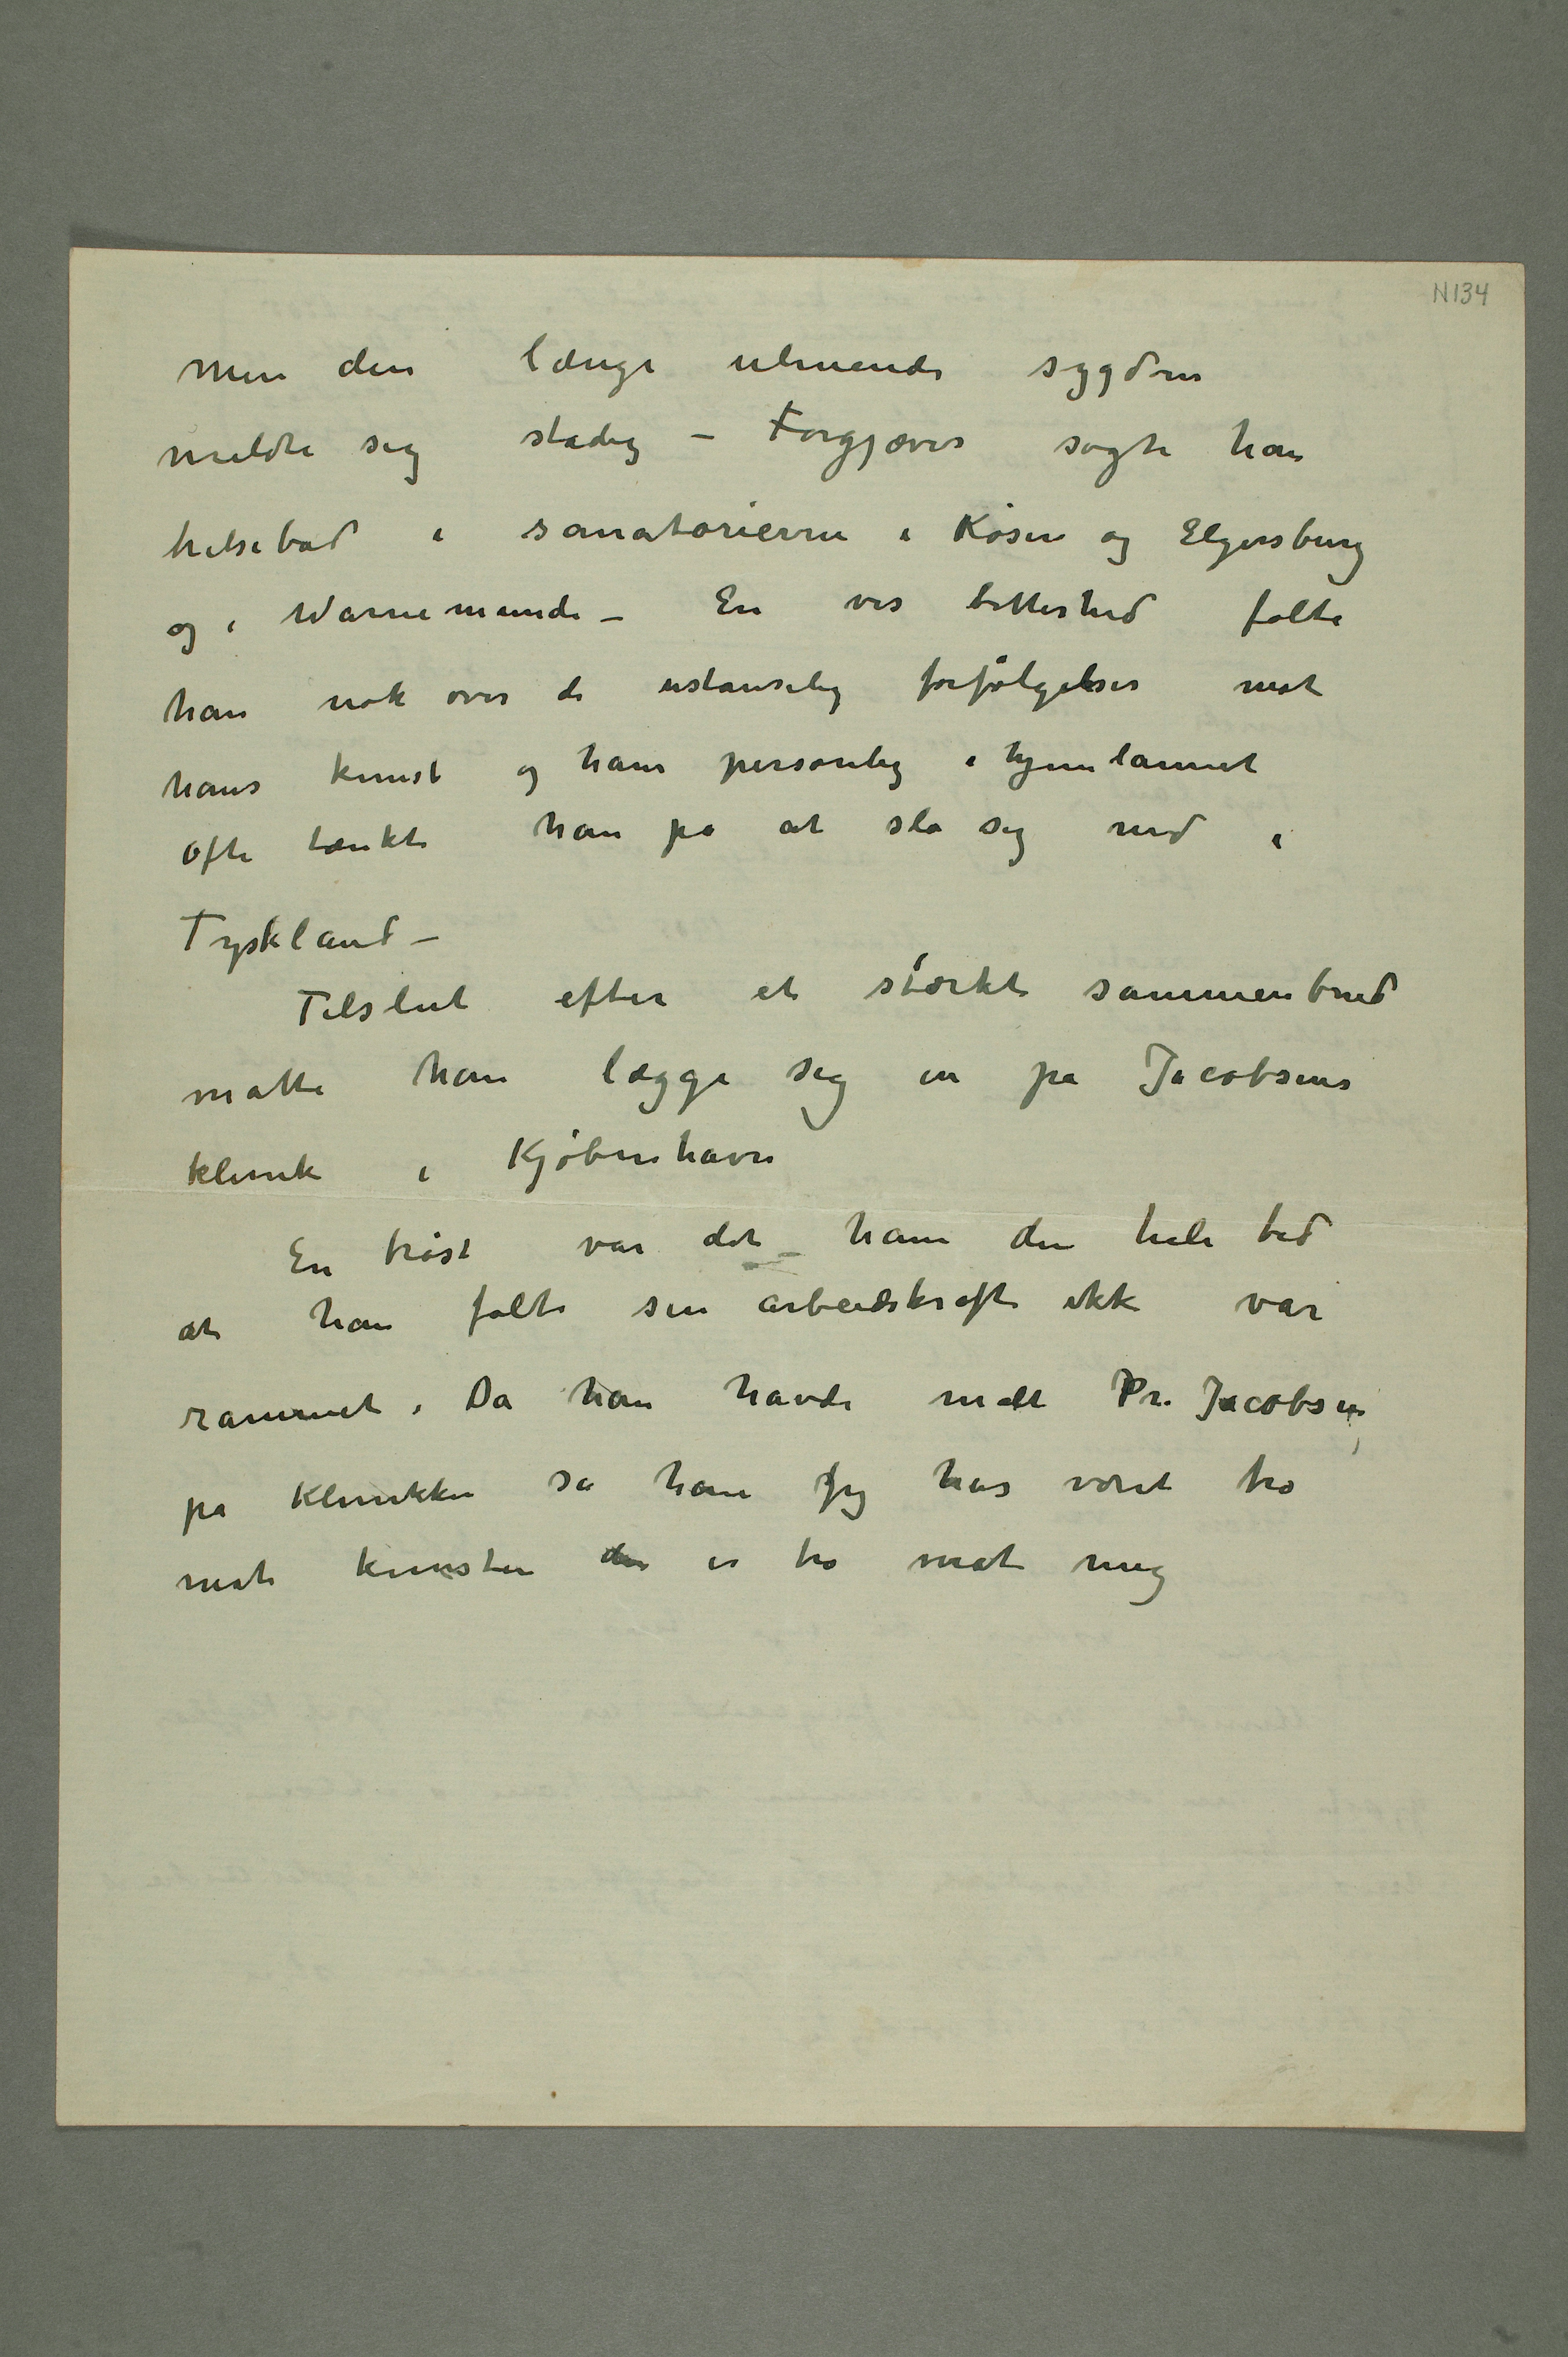 N 134
Men den længe ulmende sygdom
meldte sig stadig – Forgjæves søgte han
helsebad i sanatorierne i Køsen og Elgersburg
og i Warnemünde – En vis bitterhed følte
han nok over de ustanselig forfølgelser mot
hans kunst og hans personlig i hjemlannet
Ofte tænkte han på at slå sig ned i
Tyskland –
Tilslut efter et stærkt sammenbrud
måtte han lægge sig in på Jacobsens
klinik i Kjøbenhavn
En trøst var det ham den hele tid
at han følte sin arbeidskraft ikke var
rammet. Da han havde malt Pr. Jacobsen,
på Klinikken sa han Jeg har været tro
mot kunsten den er tro mot mig